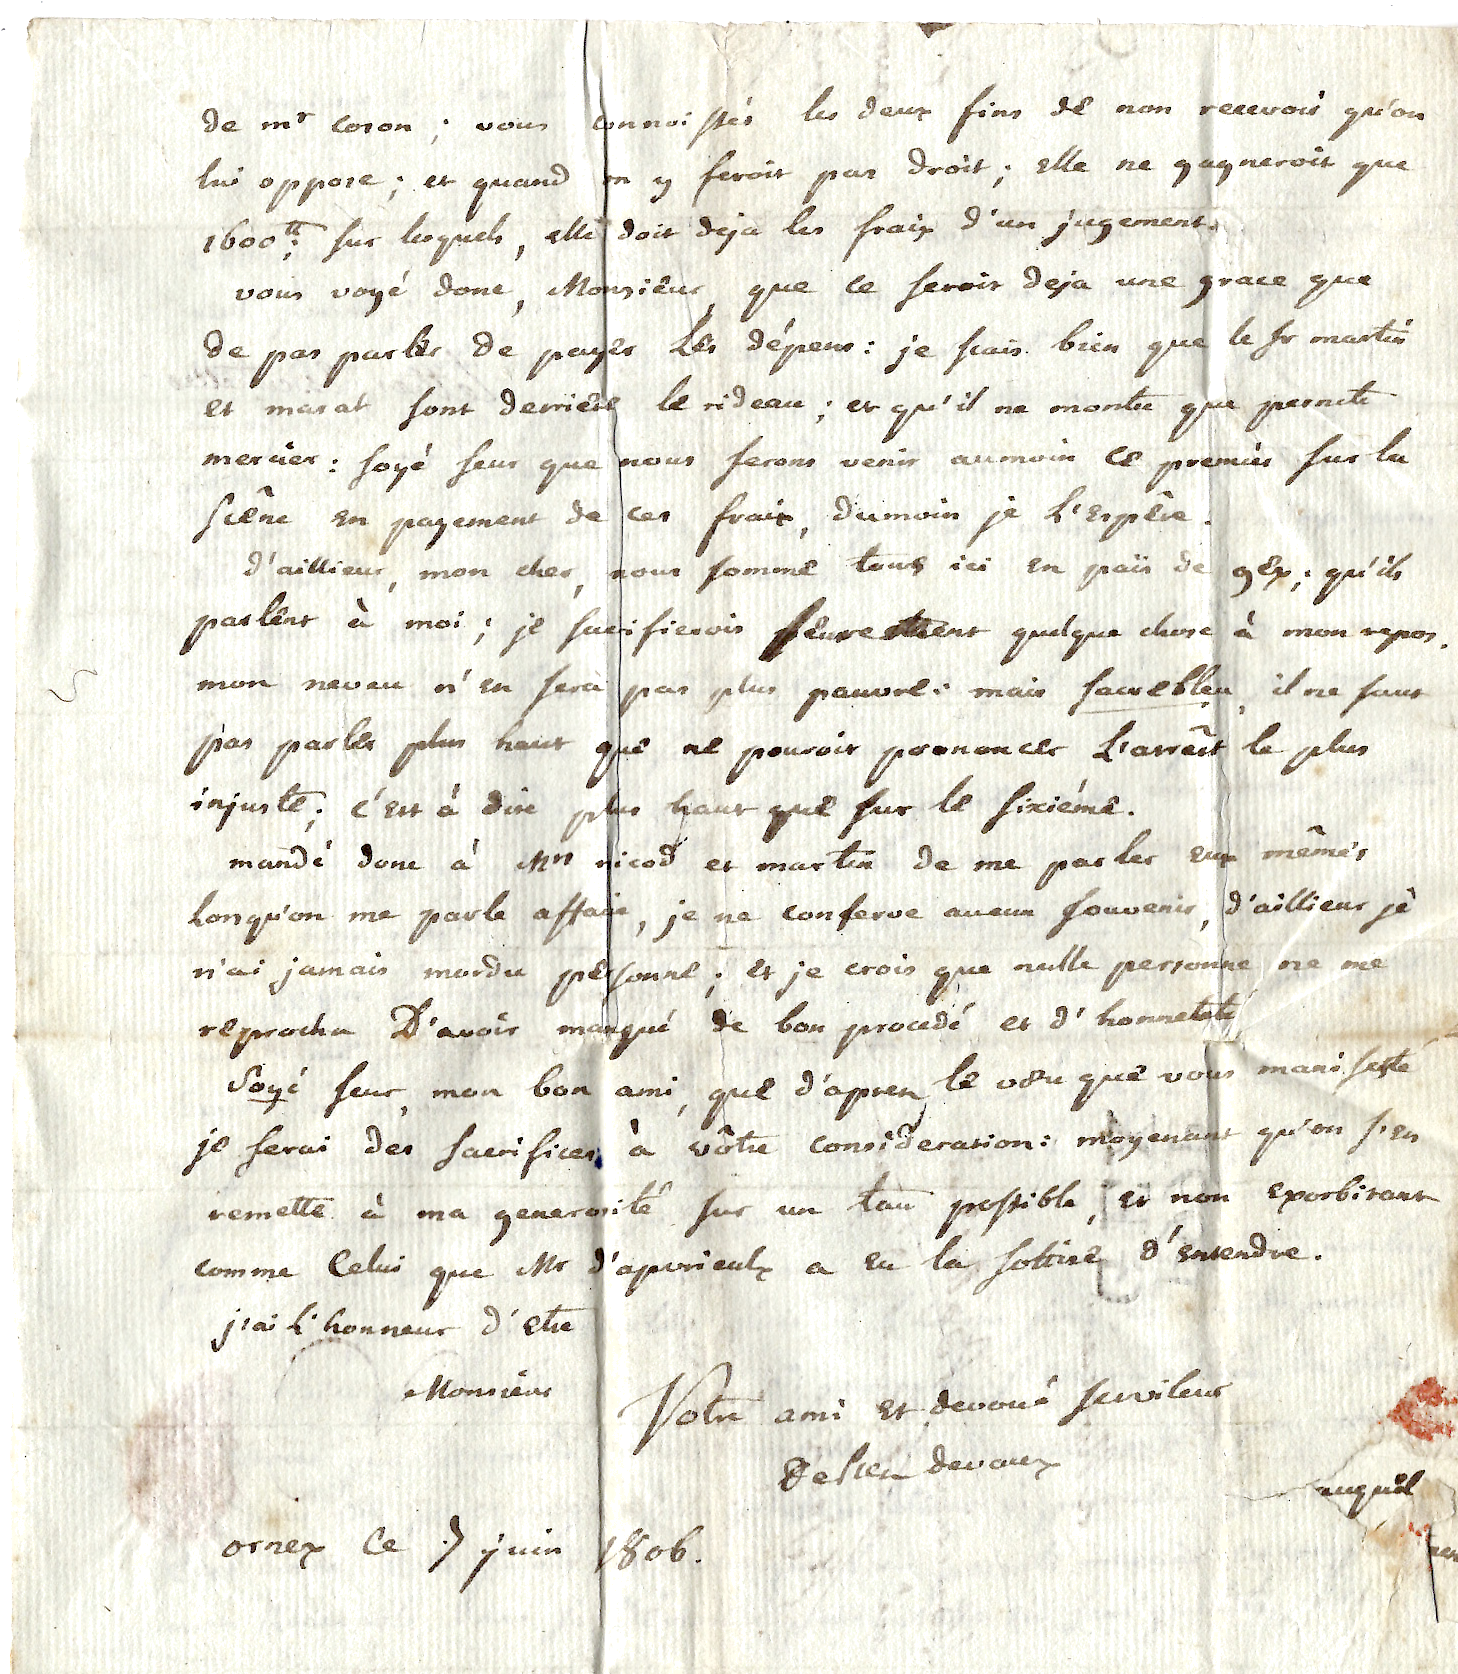 de mr coson ; vous connoissés les deux fins de non recevoir qu'on
lui oppose ; et quand on y feroit pas droit ; elle ne gagneroit que
1600 tt ; sur lesquels, elle doit deja les fraix d'un jugement.
vous voyé donc, Monsieur, que ce seroit deja une grace que
de pas parler de payer Les dépens : je scais bien que le sr martin
et marat sont derriere le rideau ; et qu'il ne montre que pernette
mercier : soyé seur que nous ferons venir aumoin ce premier sur la
scêne en payement de ces fraix, dumoin je L'espêre.
d'aillieur, mon cher, nous somme tous ici en païs de gex ; qu'ils
parlent à moi ; je sacrifierois seurement quelque chose à mon repos.
mon neveu n'en sera pas plus pauvre : mais sacrebleu, il ne faut
pas parler plus haut que ne pouroit prononcer L'arrêt le plus
injuste ; c'est à dire plus haut que sur le sixiéme.
mandé donc à Mrs nicod et martin de me parler eux mêmes
Lorsqu'on me parle affaire, je ne conserve aucun souvenir, d'aillieur je
n'ai jamais mordu personne ; et je crois que nulle personne ne me
reprocha D'avoir manqué de bon procedé et d'honneteté
Soyé seur, mon bon ami, que d'apres le vœu que vous manifesté
je ferai des sacrifices à vôtre consideration : moyenant qu'on s'en
remette à ma generosité sur un tau possible, et non exorbitant
comme Celui que Mr d'apvrieulx a eu la sottise d'entendre.
j'ai L'honneur d'etre
Monsieur
Votre ami et devoué serviteur
devaux
auquel
ornex Ce 7 juin 1806.